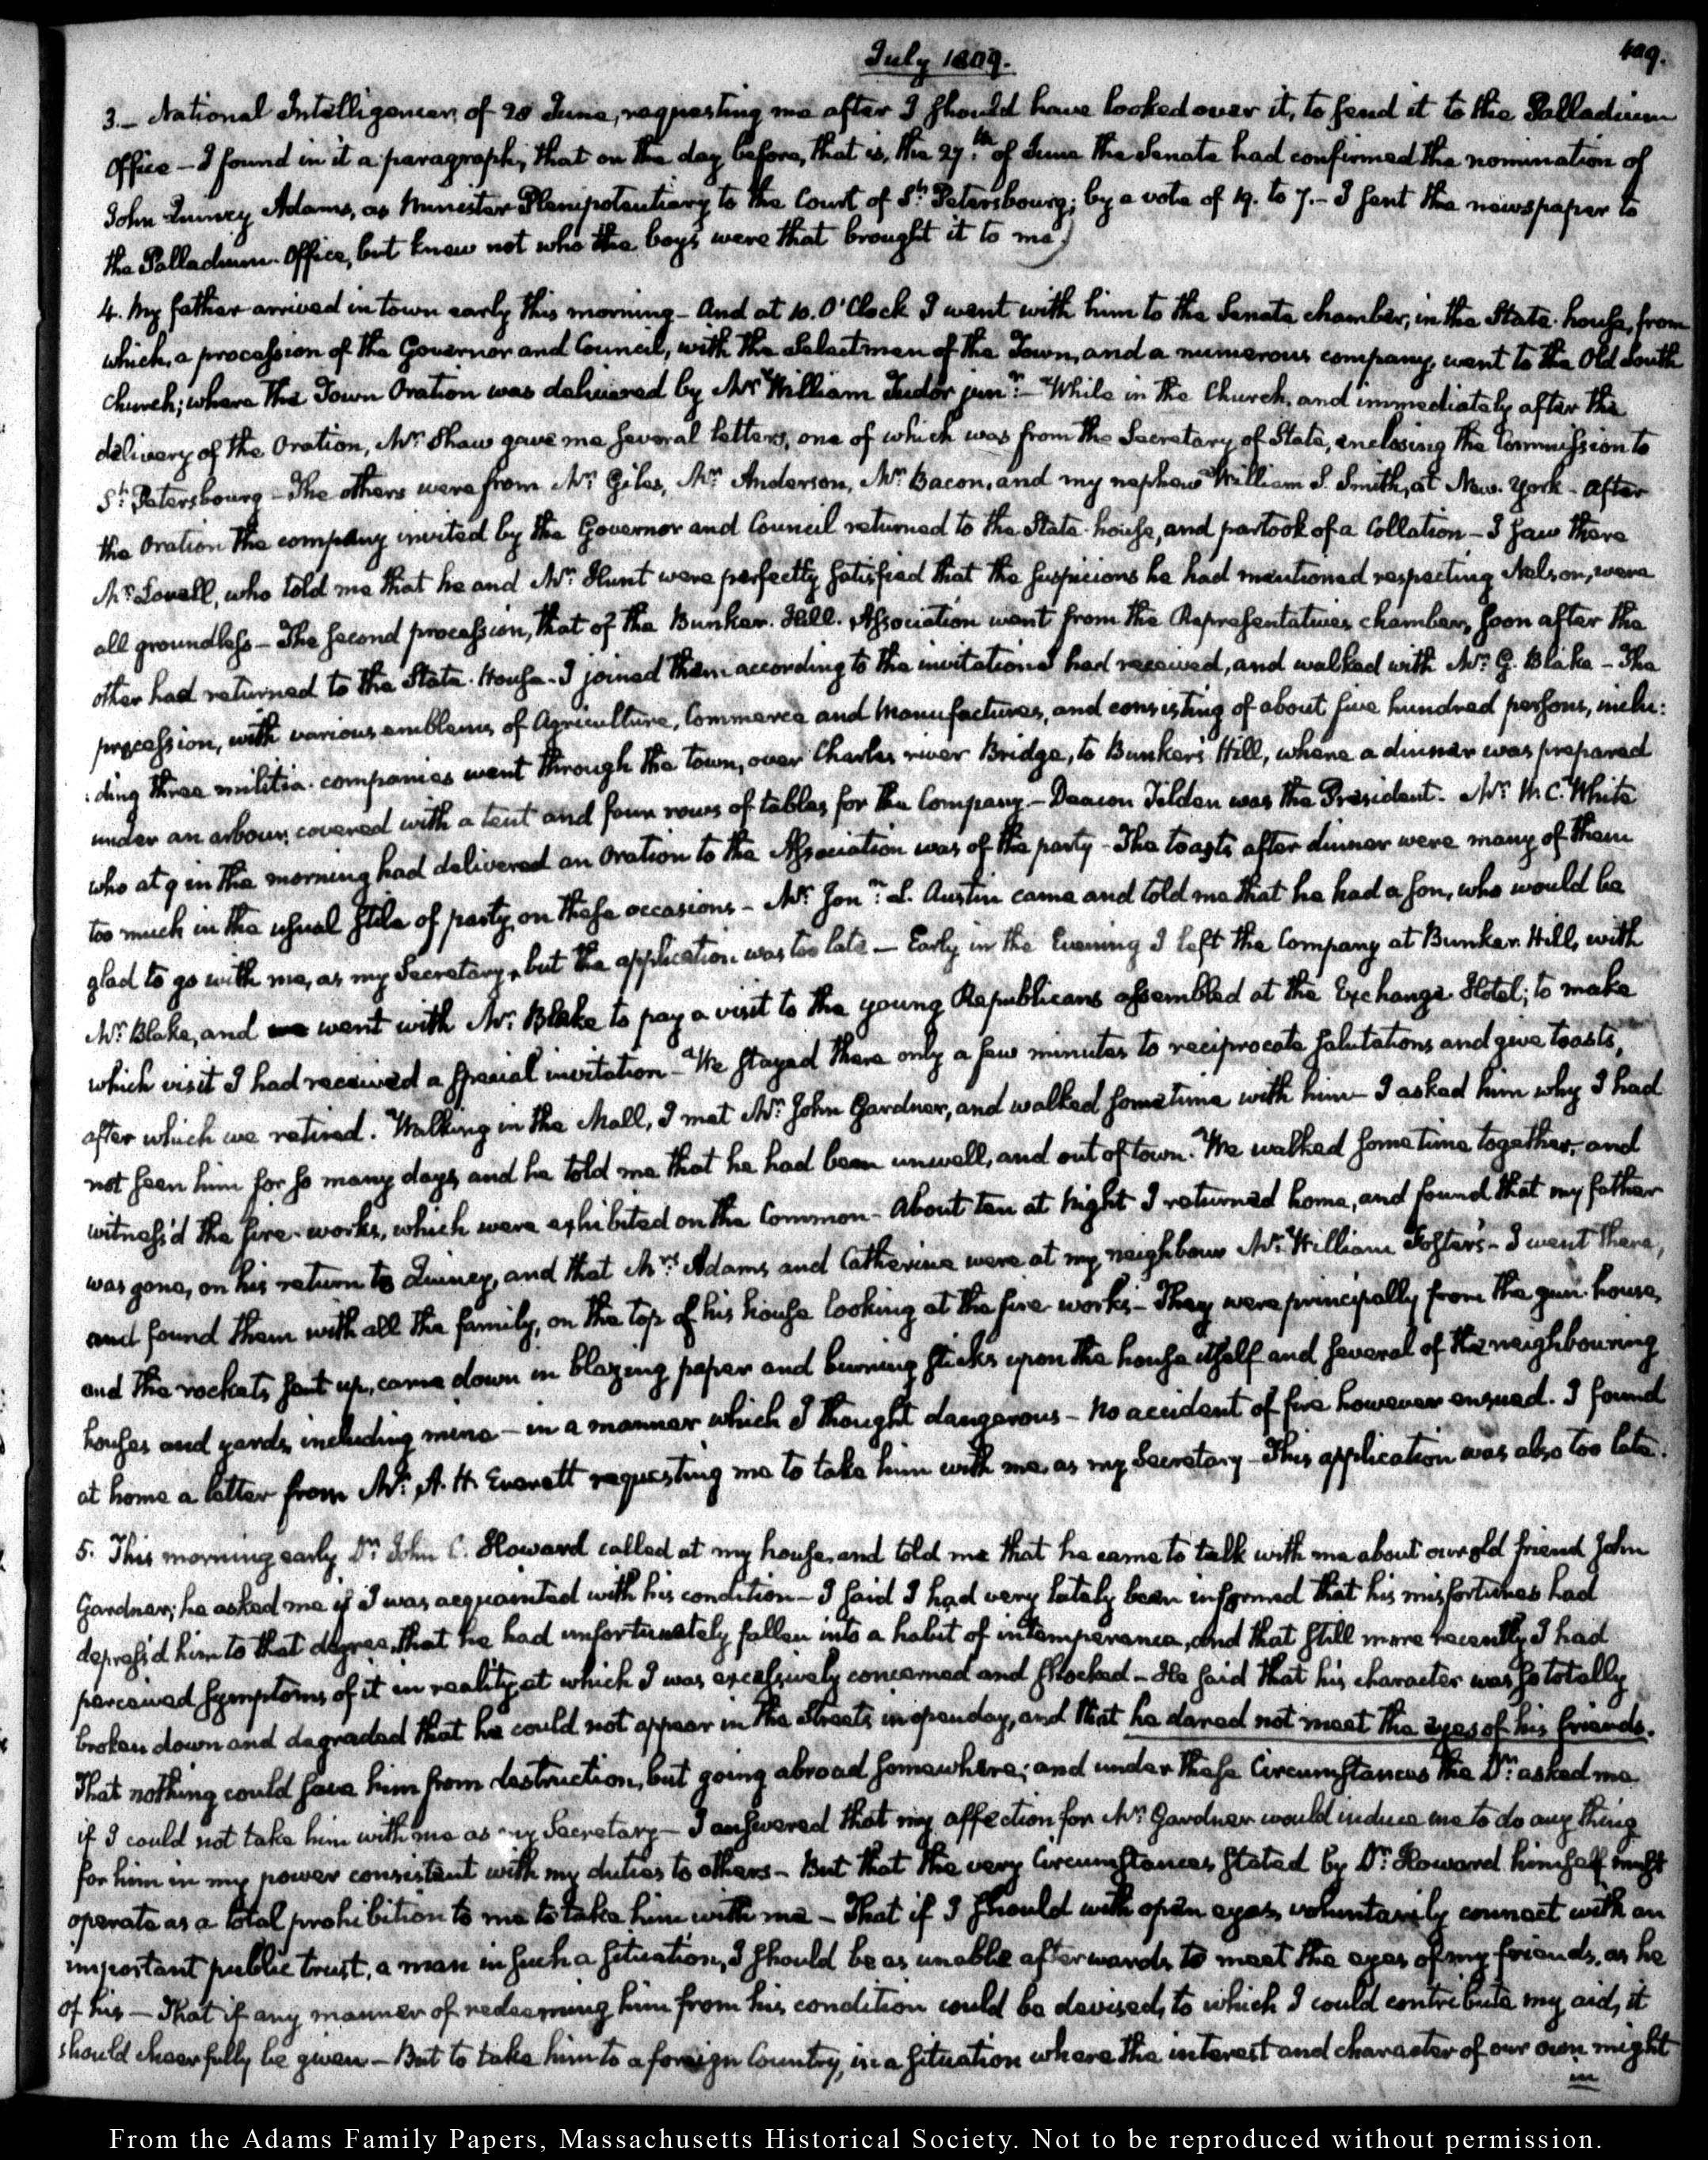 July 1809.
409.
3.— National Intelligencer, of 28 June, requesting me after I should have looked over it, to send it to the Palladium
Office — I found in it a paragraph, that on the day before, that is, the 27.th of June the Senate had confirmed the nomination of
John Quincy Adams, as Minister Plenipotentiary to the Court of St. Petersbourg; by a vote of 19. to 7.— I sent the newspaper to
the Palladium Office, but knew not who the boys were that brought it to me.)
4. My father arrived in town early this morning — And at 10. O'Clock I went with him to the Senate chamber, in the State-house, from
which, a procession of the Governor and Council, with the Selectmen of the Town, and a numerous company, went to the Old South
Church; where the Town Oration was delivered by Mr. William Tudor junr.— While in the Church, and immediately after the
delivery of the Oration, Mr. Shaw gave me several letters, one of which was from the Secretary of State, enclosing the Commission to
St. Petersbourg — The others were from Mr. Giles, Mr. Anderson, Mr. Bacon, and my nephew William S. Smith, at New-York — After
the Oration the company invited by the Governor and Council returned to the State-house, and partook of a Collation — I saw there
Mr. Lovell, who told me that he and Mr. Hunt were perfectly satisfied that the suspicions he had mentioned respecting Nelson, were
all groundless — The second procession, that of the Bunker-Hill-Association went from the Representatives chamber, soon after the
other had returned to the State-House — I joined them according to the invitation I had received, and walked with Mr. G. Blake — The
procession, with various emblems of Agriculture, Commerce and Manufactures, and consisting of about five hundred persons, inclu:
:ding three militia-companies went through the town, over Charles river Bridge, to Bunker's Hill, where a dinner was prepared
under an arbour, covered with a tent and four rows of tables for the Company — Deacon Tilden was the President. Mr. W. C. White
who at 9 in the morning had delivered an Oration to the Association was of the party — The toasts after dinner were many of them
too much in the usual stile of party, on these occasions — Mr. Jonn. L. Austin came and told me that he had a son, who would be
glad to go with me, as my Secretary, but the application was too late — Early in the Evening I left the Company at Bunker Hill, with
Mr. Blake, and went with Mr. Blake to pay a visit to the young Republicans assembled at the Exchange Hotel; to make
which visit I had received a special invitation — We stayed there only a few minutes to reciprocate salutations and give toasts,
after which we retired. Walking in the Mall, I met Mr. John Gardner, and walked sometime with him — I asked him why I had
not seen him for so many days, and he told me that he had been unwell, and out of town. We walked some time together, and
witness'd the fire-works, which were exhibited on the Common — About ten at Night I returned home, and found that my father
was gone, on his return to Quincy, and that Mrs. Adams and Catherine were at my neighbour Mr. William Foster's — I went there,
and found them with all the family, on the top of his house looking at the fire-works — They were principally from the gun-house,
and the rockets sent up, came down in blazing paper and burning sticks upon the house itself and several of the neighbouring
houses and yards, including mine — in a manner which I thought dangerous — No accident of fire however ensued. I found
at home a letter from Mr. A. H. Everett requesting me to take him with me, as my Secretary — This application was also too late.
5. This morning early Dr. John C. Howard called at my house, and told me that he came to talk with me about our old friend John
Gardner; he asked me if I was acquainted with his condition — I said I had very lately been informed that his misfortunes had
depress'd him to that degree, that he had unfortunately fallen into a habit of intemperance, and that still more recently I had
perceived symptoms of it in reality, at which I was excessively concerned and shocked — He said that his character was so totally
broken down and degraded that he could not appear in the Streets in open day, and that he dared not meet the eyes of his friends.
That nothing could save him from destruction, but going abroad somewhere; and under these Circumstances the Dr. asked me
if I could not take him with me as my Secretary — I answered that my affection for Mr. Gardner would induce me to do any thing
for him in my power consistent with my duties to others — But that the very Circumstances stated by Dr. Howard himself must
operate as a total prohibition to me to take him with me — That if I should with open eyes, voluntarily connect with an
important public trust, a man in such a situation, I should be as unable afterwards to meet the eyes of my friends, as he
of his — That if any manner of redeeming him from his condition could be devised, to which I could contribute my aid, it
should cheerfully be given — But to take him to a foreign Country, in a situation where the interest and character of our own might
in
From the Adams Family Papers, Massachusetts Historical Society. Not to be reproduced without permission.